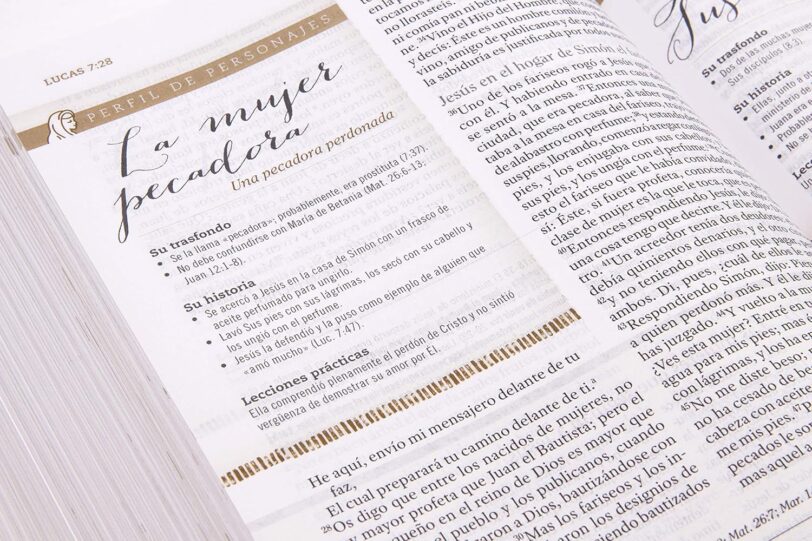 LUCAS 7:28
PERFIL DE PERSONAJES
La mujer
pecadora
Una pecadora perdonada
Su trasfondo
• Se la llama «pecadora»; probablemente, era prostituta (7:37).
• No debe confundirse con María de Betania (Mat. 26:6-13;
Juan 12:1-8).
Su historia
• Se acercó a Jesús en la casa de Simón con un frasco de
aceite perfumado para ungirlo.
• Lavó Sus pies con sus lágrimas, los secó con su cabello y
los ungió con el perfume.
• Jesús la defendió y la puso como ejemplo de alguien que
«amó mucho» (Luc. 7:47).
Lecciones prácticas
Ella comprendió plenamente el perdón de Cristo y no sintió
vergüenza de demostrar su amor por Él.
He aquí, envío mi mensajero delante de tu
faz,
El cual preparará tu camino delante de ti.ᵃ
²⁸Os digo que entre los nacidos de mujeres, no
y mayor profeta que Juan el Bautista; pero el
queño en el reino de Dios es mayor que
el pueblo y los publicanos, cuando
raron a Dios, bautizándose con
³⁰Mas los fariseos y los in-
aron los designios de
iendo bautizados
no llorasteis.
ni comía pan ni bebía
ne. ³⁴Vino el Hijo del Hombre, que
y decís: Este es un hombre comilón y
vino, amigo de publicanos y de pecadores
la sabiduría es justificada por todos
Jesús en el hogar de Simón el
³⁶Uno de los fariseos rogó a Jesús
con él. Y habiendo entrado en casa
se sentó a la mesa. ³⁷Entonces una
ciudad, que era pecadora, al saber
taba a la mesa en casa del fariseo, trajo
de alabastro con perfume; ³⁸y estando
sus pies, llorando, comenzó a regar
pies, y los enjugaba con sus cabellos
sus pies, y los ungía con el perfume.
esto el fariseo que le había convidado
sí: Este, si fuera profeta, conocería
clase de mujer es la que le toca, que
Entonces respondiendo Jesús, le
una cosa tengo que decirte. Y él le
tro. ⁴¹Un acreedor tenía dos deudores
debía quinientos denarios, y el otro
⁴²y no teniendo ellos con qué pagar
ambos. Di, pues, ¿cuál de ellos
⁴³Respondiendo Simón, dijo: Pienso
a quien perdonó más. Y él le
has juzgado. ⁴⁴Y vuelto a la mujer
¿Ves esta mujer? Entré en
agua para mis pies; mas
con lágrimas, y los ha
⁴⁵No me diste beso
no ha cesado de be
cabeza con aceite
me mis pies. ⁴⁷
pecados le so
mas aquel a
Mat. 26:7; Mar. 1
Su trasfondo
• Dos de las muchas
• Sus discípulos (8:3).
Su historia
• Ellas, junto
• Juana
Le